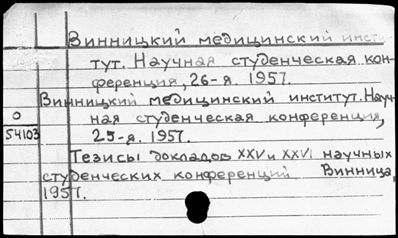 Винницкий медицинский инсти-
тут. Научная студенческая кон-
ференция, 26-я. 1957.
Винницкий медицинский институт. Науч-
ная студенческая конференция,
25-я. 1957.
О
54103
Тезисы докладов XXV и XXVI научных
студенческих конференций. Винница,
1957.